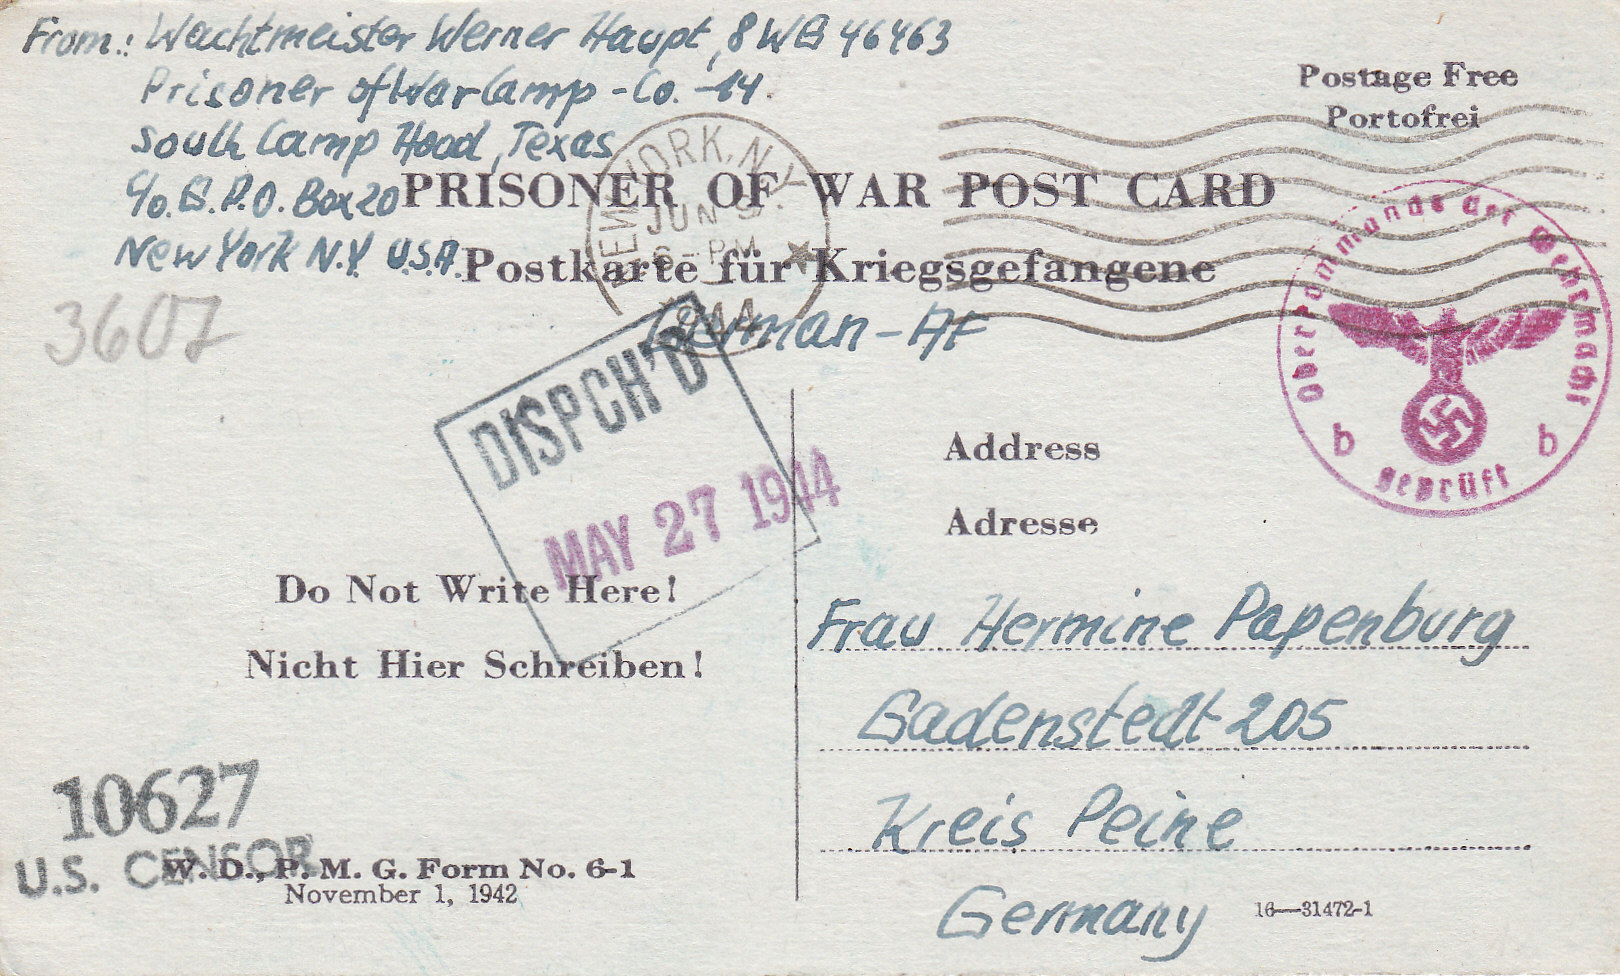 From: Wachtmeister Werner Haupt, 8WG 46463
Prisoner of War Camp - Co. - 14.
South Camp Hood, Texas
c/o. G.P.O. Box 20
New York N.Y. U.S.A.
Postage Free
Portofrei
NEW YORK, N.Y.
JUN
PM
1944
PRISONER OF WAR POST CARD
Postkarte für Kriegsgefangene
German - AF
3607
Oberkommando der Wehrmacht
b b
Geprüft
DISPCH'D
MAY 27 1944
Address
Adresse
Do Not Write Here!
Nicht Hier Schreiben!
Frau Hermine Papenburg
Gadenstedt 205
Kreis Peine
Germany
10627
U.S. CENSOR
W. D., P. M. G. Form No. 6-1
November 1, 1942
16—31472-1